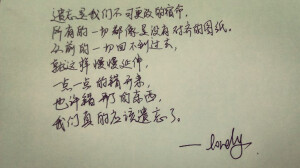 遗忘是我们不可更改的宿命，
所有的一切都像是没有对齐的图纸。
从前的一切回不到过去，
就这样慢慢延伸，
一点一点的错开来，
也许错开了的东西，
我们真的应该遗忘了。
—lovely